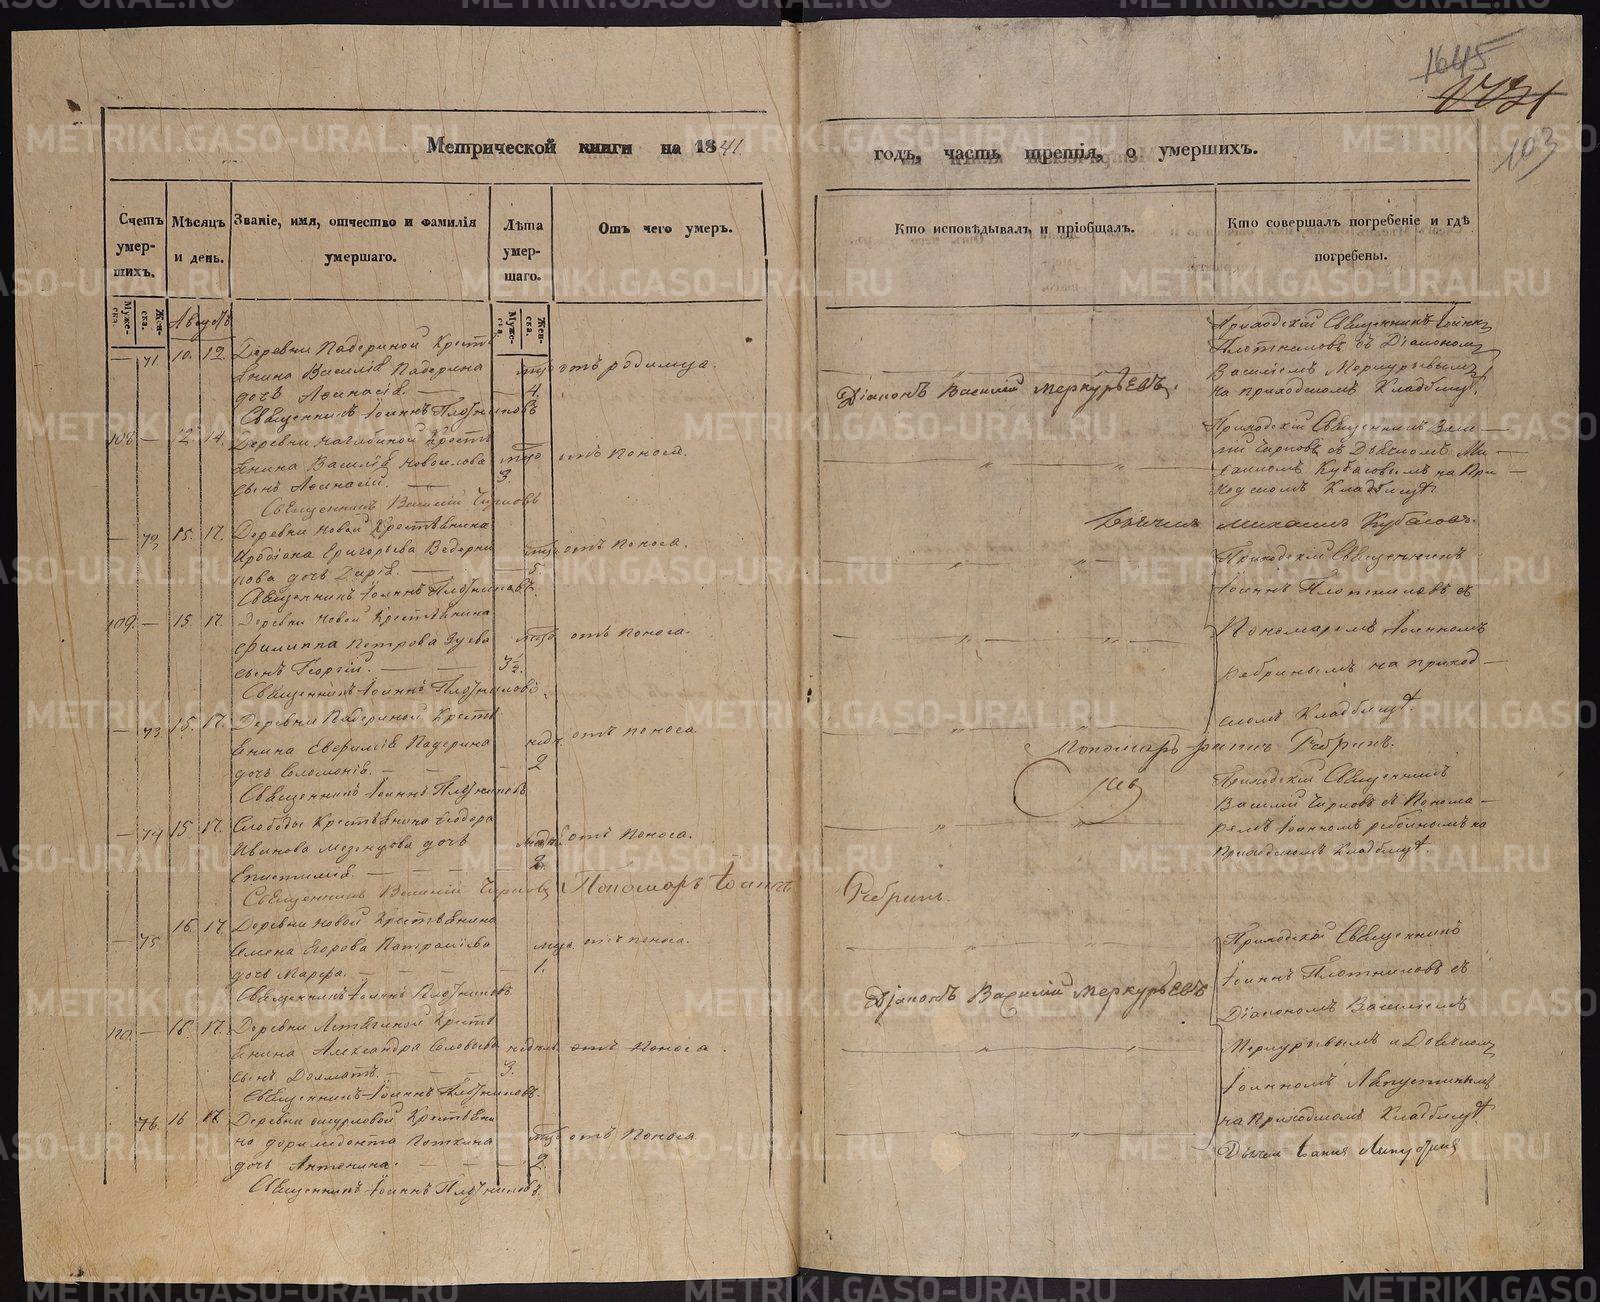 1645
103
Метрической книги на 1841
годъ, часть третія, о умершихъ.
Счетъ умерших.
Мѣсяцъ и день.
Званіе, имя, отчество и фамилія умершаго.
Лѣта умершаго.
Отъ чего умеръ.
Кто исповѣдывалъ и пріобщалъ.
Кто совершалъ погребеніе и гдѣ погребены.
Муже-ска.
Жен-ска.
Августъ
Муже-ска.
Жен-ска.
— 71 10. 12. Деревни Падериной Кресть
янина Василія Падерина
отъ родимца.
дочь Афанасія. — 4.
Священникъ Іоаннъ Плотниковъ
Діаконъ Василій Меркурьевъ.
Приходскій Священникъ Іоаннъ
Плотниковъ съ Діакономъ
Василіемъ Меркурьевымъ
на приходскомъ Кладбищѣ
108 — 12 14. Деревни Кресть
янина Василія Новоселова
отъ поноса.
сынъ Афанасій. — 3.
Священникъ Василій Чирковъ
Приходскій Священникъ Васи —
лій Чирковъ съ Дьячкомъ Ми —
хаиломъ Кубасовымъ на При —
ходскомъ Кладбищѣ
Дьячекъ Михаилъ Кубасовъ.
— 72 15. 17. Деревни Новой Крестьянина
Иродіона Григорьева Ведерни
кова дочь Дарія. — 5.
отъ поноса.
Священникъ Іоаннъ Плотниковъ.
Приходскій Священникъ
Іоаннъ Плотниковъ съ
109. — 15. 17. Деревни Новой Крестьянина
Филиппа Петрова Зуева
отъ поноса.
сынъ Георгій. —
Священникъ Іоаннъ Плотниковъ.
Пономаремъ Іоанномъ
Ребринымъ на приход —
скомъ Кладбищѣ
— 73. 15. 17. Деревни Падериной Кресть
янина Евфимія Падерина
нед. отъ поноса.
дочь Соломонія. — 2
Священникъ Іоаннъ Плотниковъ
Пономарь Іоаннъ Ребринъ.
— 74 15 17. Слободы Крестьянина Ѳеодора
Иванова Мезенцова дочь
отъ поноса.
Епистимія. — 2.
Священникъ Василій Чирковъ Пономарь Іоаннъ
Ребринъ.
Приходскій Священникъ
Василій Чирковъ съ Понома —
ремъ Іоанномъ Ребринымъ на
Приходскомъ Кладбищѣ.
— 75 16. 17. Деревни Новой Крестьянина
Семена Егорова Патракѣева
отъ поноса.
дочь Марфа. — 1.
Священникъ Іоаннъ Плотниковъ.
Діаконъ Василій Меркурьевъ
Приходскій Священникъ
Іоаннъ Плотниковъ съ
Діакономъ Василіемъ
110. — 16. 17. Деревни Кресть
янина Александра Соловьева
отъ поноса.
сынъ Долматъ. — 3.
Священникъ Іоаннъ Плотниковъ.
Меркурьевымъ и Дьячкомъ
Іоанномъ
— 76. 16 18. Деревни Крестьяни
на Доримедонта Поткина
отъ поноса
дочь Антонина. — 2.
Священникъ Іоаннъ Плотниковъ.
на Приходскомъ Кладбищѣ